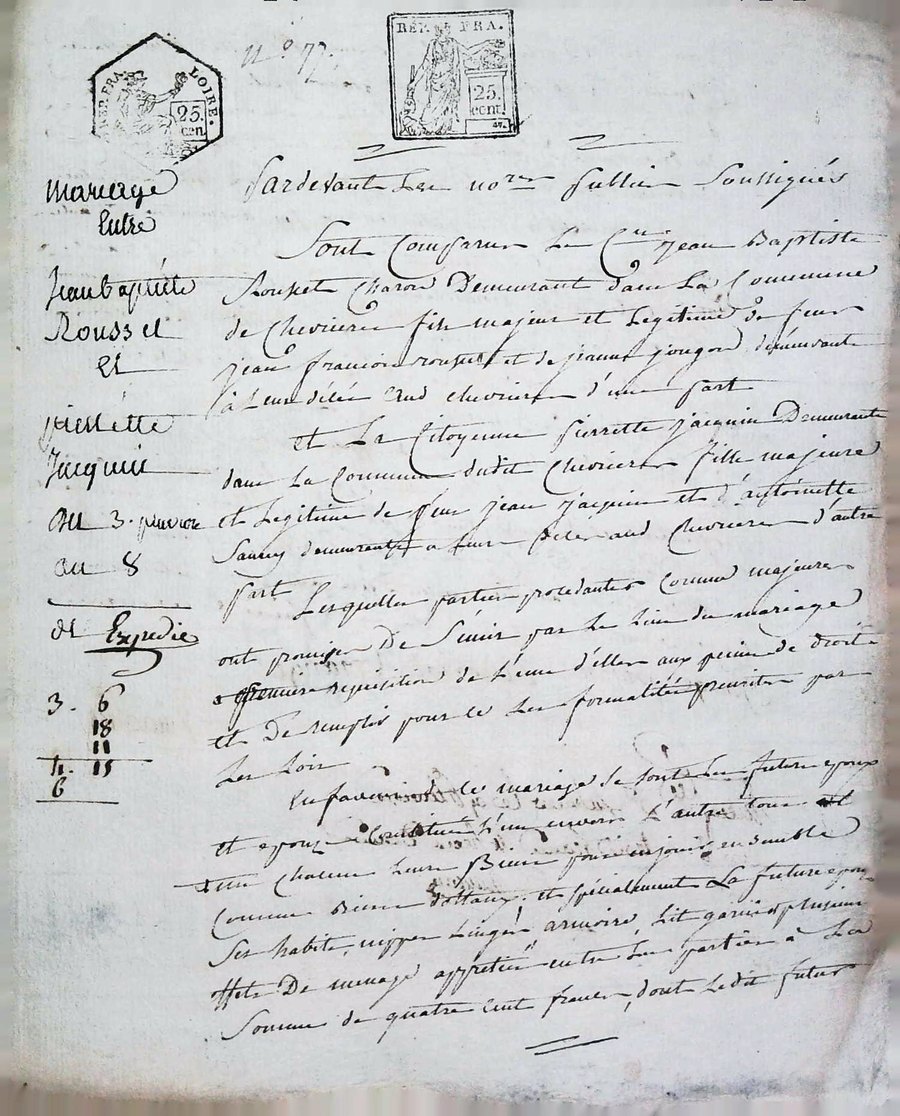 N.° 72.
REP. FRA. LOIRE.
25. cen.
REP. FRA.
25. cent.
Mariage
Entre
Jean baptiste
Rousset
et
pierrette
Jacquin
du 3. pluviose
an 8
et Expedié
3. 6
18
11
4. 15
6
Pardevant Les no.res Publics Soussignés
Sont Comparus Le C.en Jean Baptiste
Rousset Charon Demeurant dans La Commune
de Chevrieres fils majeur et Legitime de feus
jean francois rousset et de jeanne jougon demeurants
à Leur décés aud chevrieres d'une part
et La Citoyenne Pierrette Jacquin Demeurante
dans La Commune dudit Chevrieres fille majeure
et Legitime de feus Jean Jacquin et d'antoinette
demeurants a leurs décés aud Chevrieres d'autre
part Lesquelles parties procedantes Comme majeures
ont promises De S'unir par Le Lien du mariage
a premiere requisition de L'une d'elles aux peines de droit
et De remplir pour ce Les formalités prescrites par
Les Loix
En faveur de ce mariage Se sont Les futurs epoux
et epouze Constitués L'un envers L'autre tous et
un Chacun Leurs Biens pour en jouir ensemble
Comme Biens dottaux, et spécialement La future epouze
Ses habits, nippes Linges, armoire, Lit garni & plusieurs
effets De menage appretiés entre Les parties à La
Somme de quatre Cent francs, dont Ledit futur